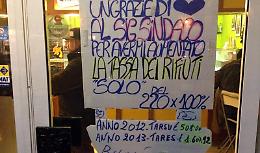 UN GRAZIE DI
AL SIG SINDACO
PER AVERMI AUMENTATO
LA TASSA DEI RIFIUTI
"SOLO" DEL
220 x 100%
ANNO 2012 - TARSU €
ANNO 2013 - TARES €